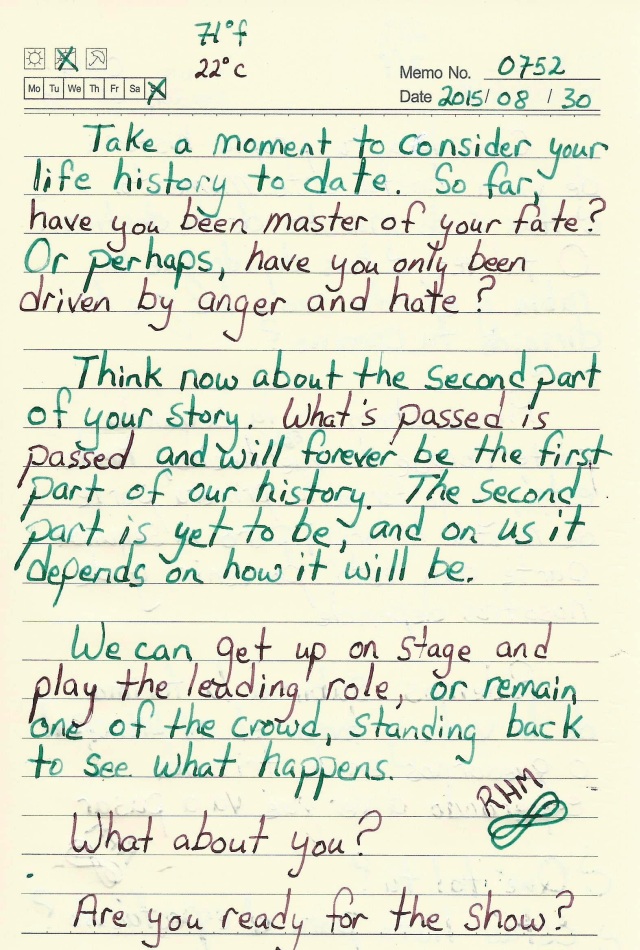 71°f
22°c
Memo No. 0752
Mo Tu We Th Fr Sa
Date 2015/ 08 / 30
Take a moment to consider your
life history to date. So far,
have you been master of your fate?
Or perhaps, have you only been
driven by anger and hate?
Think now about the second part
of your story. What's passed is
passed and will forever be the first
part of our history. The second
part is yet to be, and on us it
depends on how it will be.
We can get up on stage and
play the leading role, or remain
one of the crowd, standing back
to see what happens.
RHM
What about you?
Are you ready for the show?